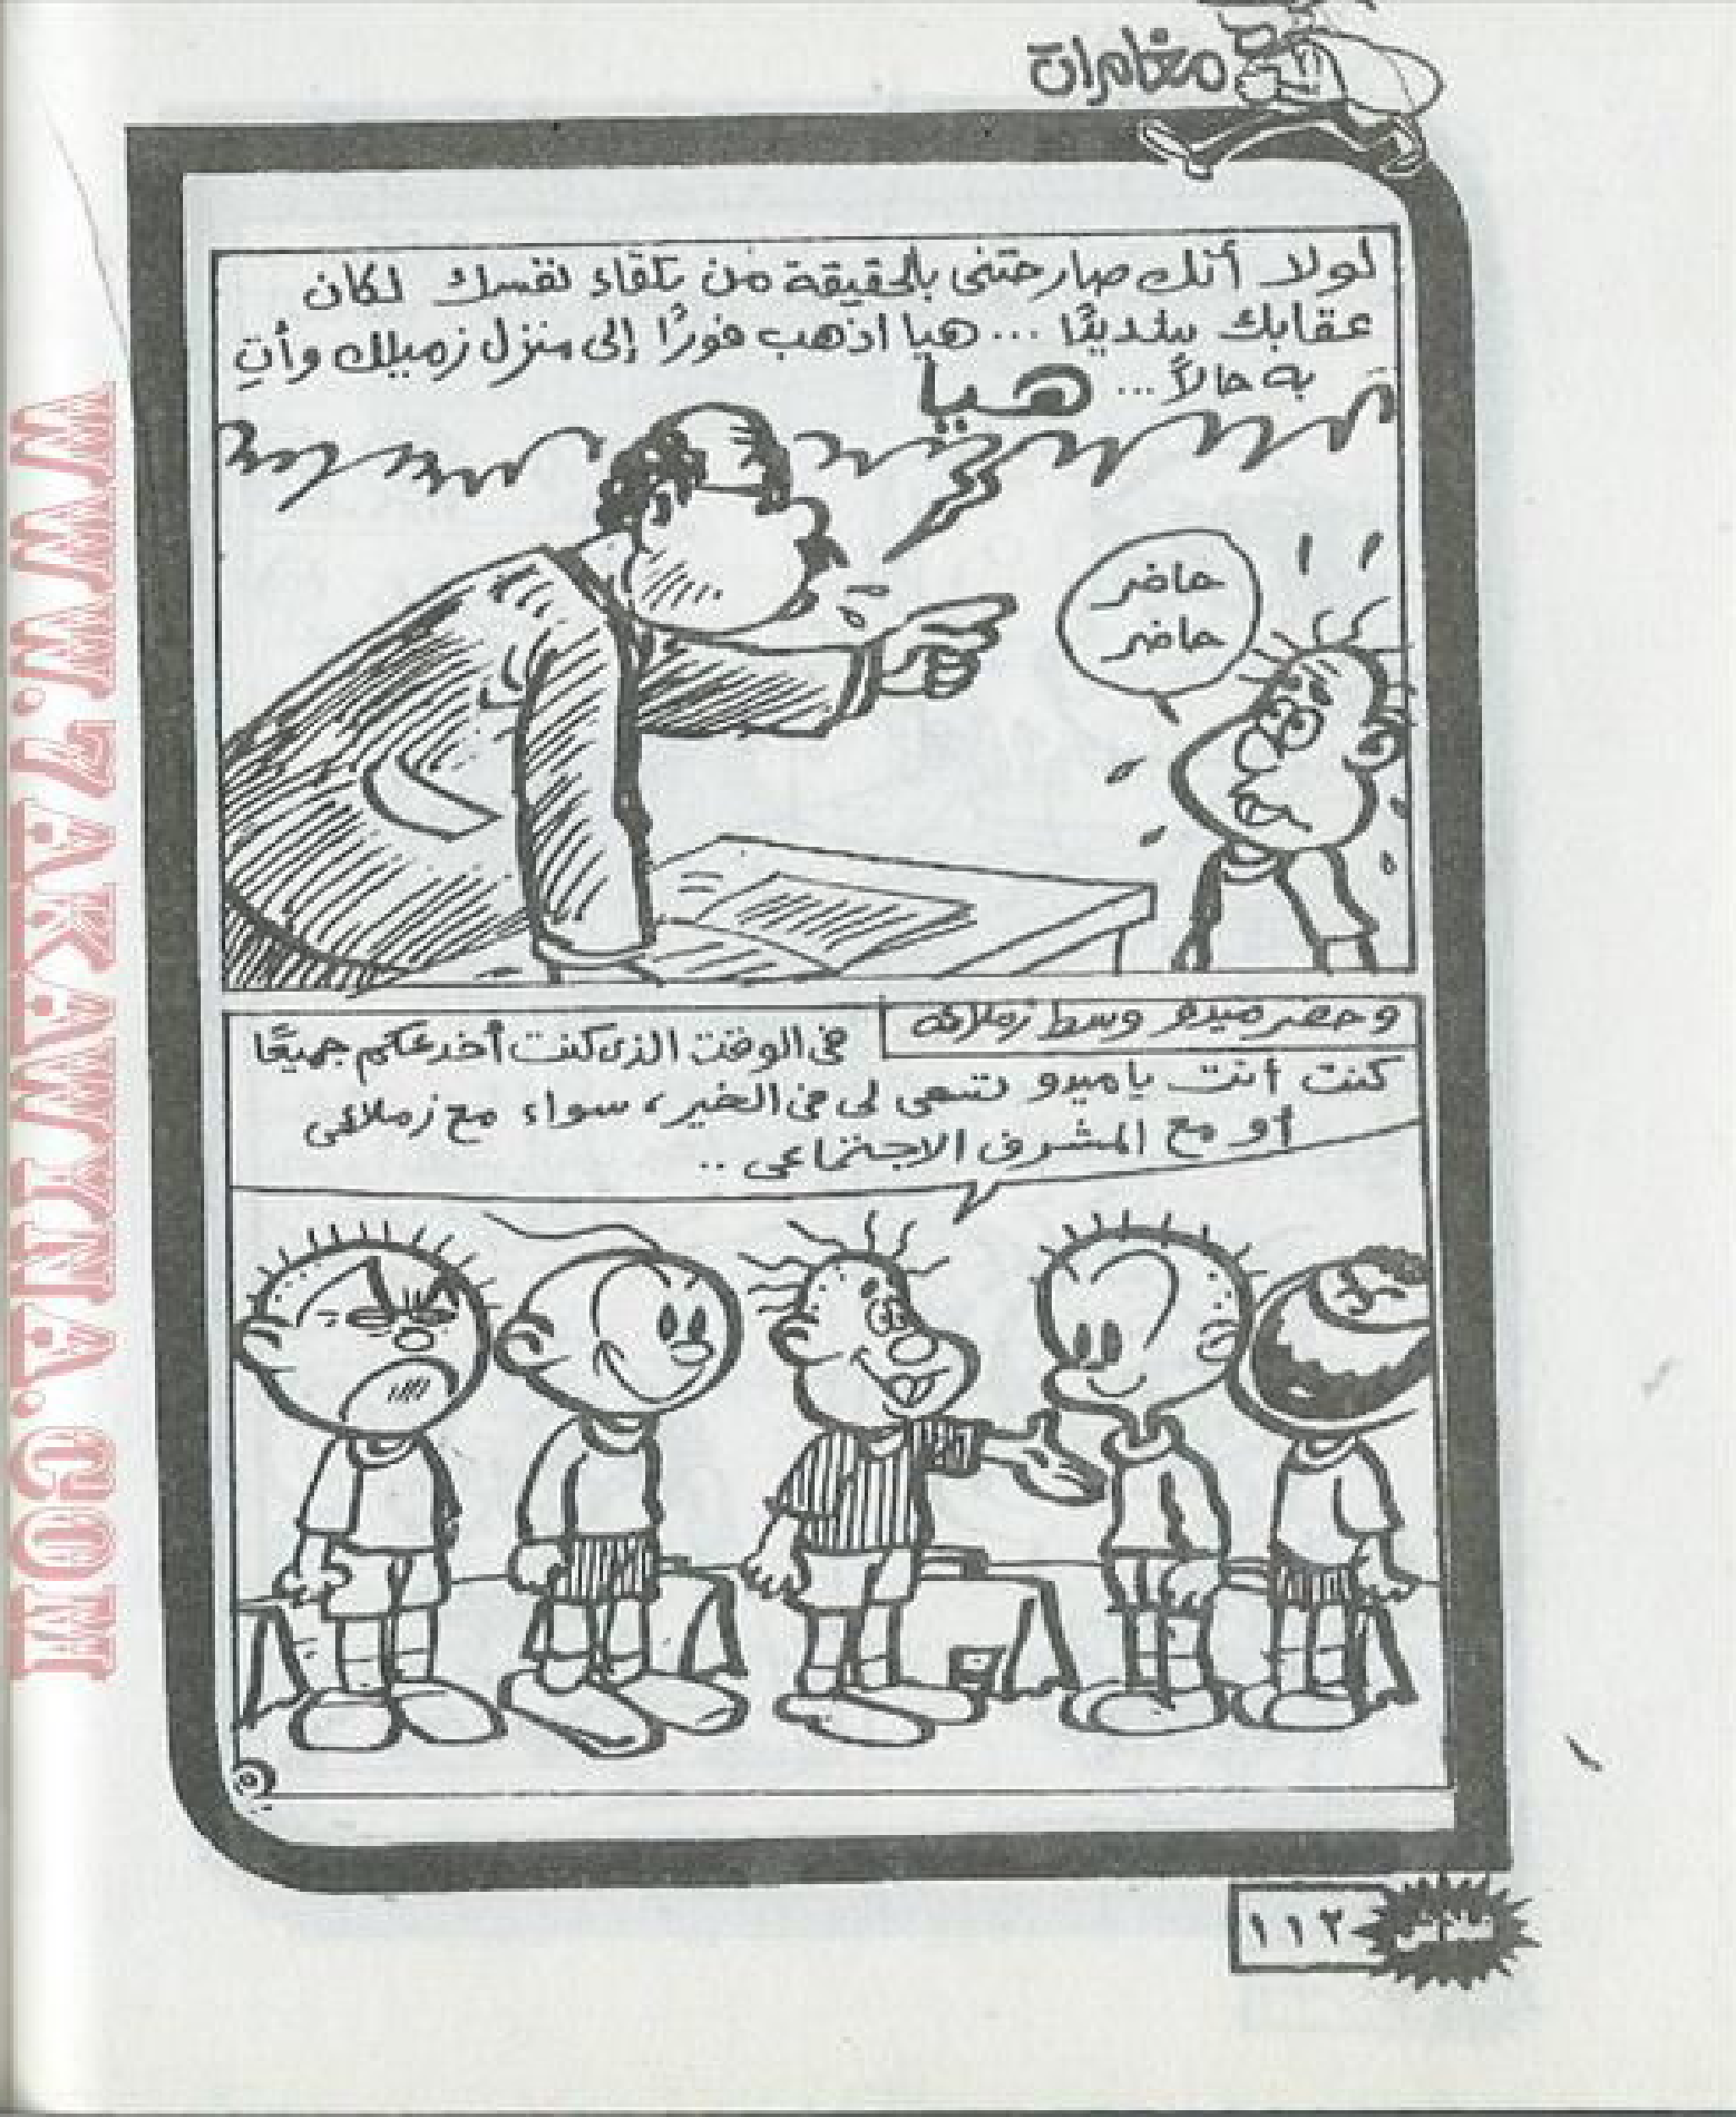 مغامرات
لولا أنك صارحتنى بالحقيقة من تلقاء نفسك لكان
عقابك شديدًا ... هيا اذهب فورًا إلى منزل زميلك وأتِ
به حالاً ... هيا
حاضر
حاضر
وحضر ميدو وسط زملائه
فى الوقت الذى كنت أخدعكم جميعًا
كنت أنت يا ميدو تسعى لى فى الخير، سواء مع زملائى
أو مع المشرف الاجتماعى ..
فلاش
١١٢
WWW.7AKAWYNA.COM